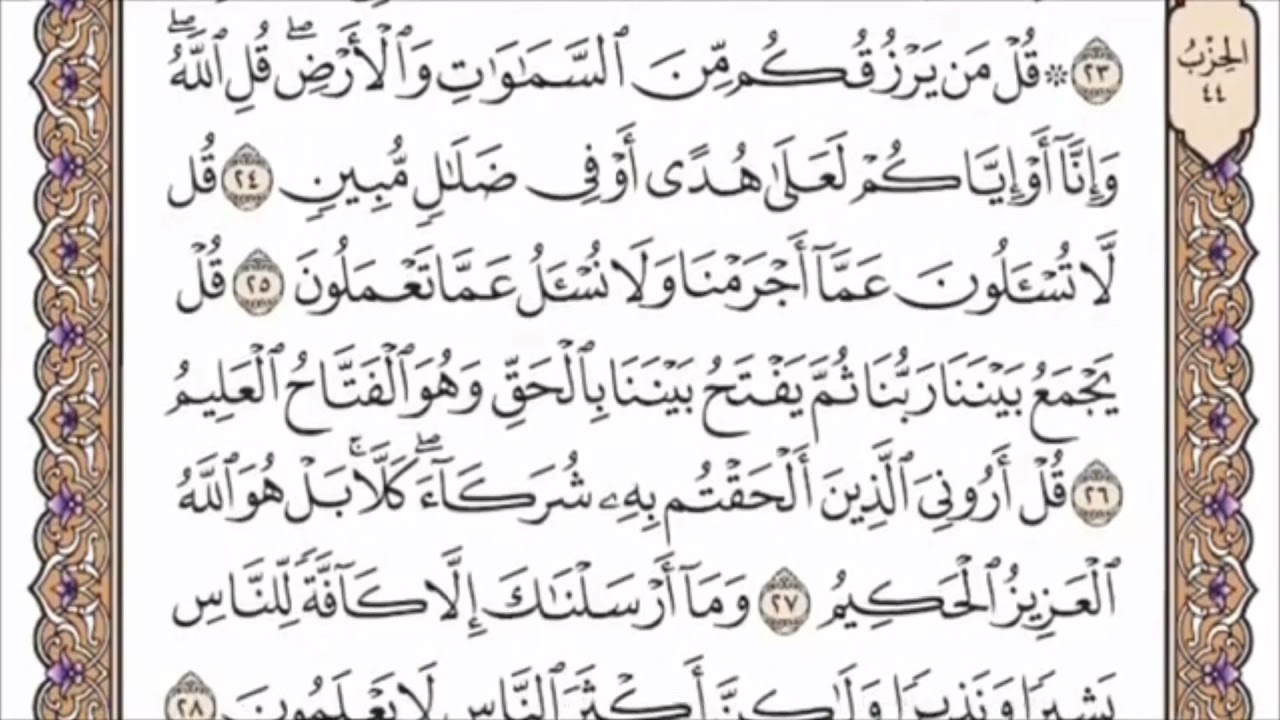 الحِزْبُ
٤٤
٢٣ ۞ قُلْ مَن يَرْزُقُكُم مِّنَ ٱلسَّمَٰوَٰتِ وَٱلْأَرْضِ ۖ قُلِ ٱللَّهُ ۖ
وَإِنَّآ أَوْ إِيَّاكُمْ لَعَلَىٰ هُدًى أَوْ فِى ضَلَٰلٍ مُّبِينٍ ٢٤ قُل
لَّا تُسْـَٔلُونَ عَمَّآ أَجْرَمْنَا وَلَا نُسْـَٔلُ عَمَّا تَعْمَلُونَ ٢٥ قُلْ
يَجْمَعُ بَيْنَنَا رَبُّنَا ثُمَّ يَفْتَحُ بَيْنَنَا بِٱلْحَقِّ وَهُوَ ٱلْفَتَّاحُ ٱلْعَلِيمُ
٢٦ قُلْ أَرُونِىَ ٱلَّذِينَ أَلْحَقْتُم بِهِۦ شُرَكَآءَ ۖ كَلَّا ۚ بَلْ هُوَ ٱللَّهُ
ٱلْعَزِيزُ ٱلْحَكِيمُ ٢٧ وَمَآ أَرْسَلْنَٰكَ إِلَّا كَآفَّةً لِّلنَّاسِ
بَشِيرًا وَنَذِيرًا وَلَٰكِنَّ أَكْثَرَ ٱلنَّاسِ لَا يَعْلَمُونَ ٢٨